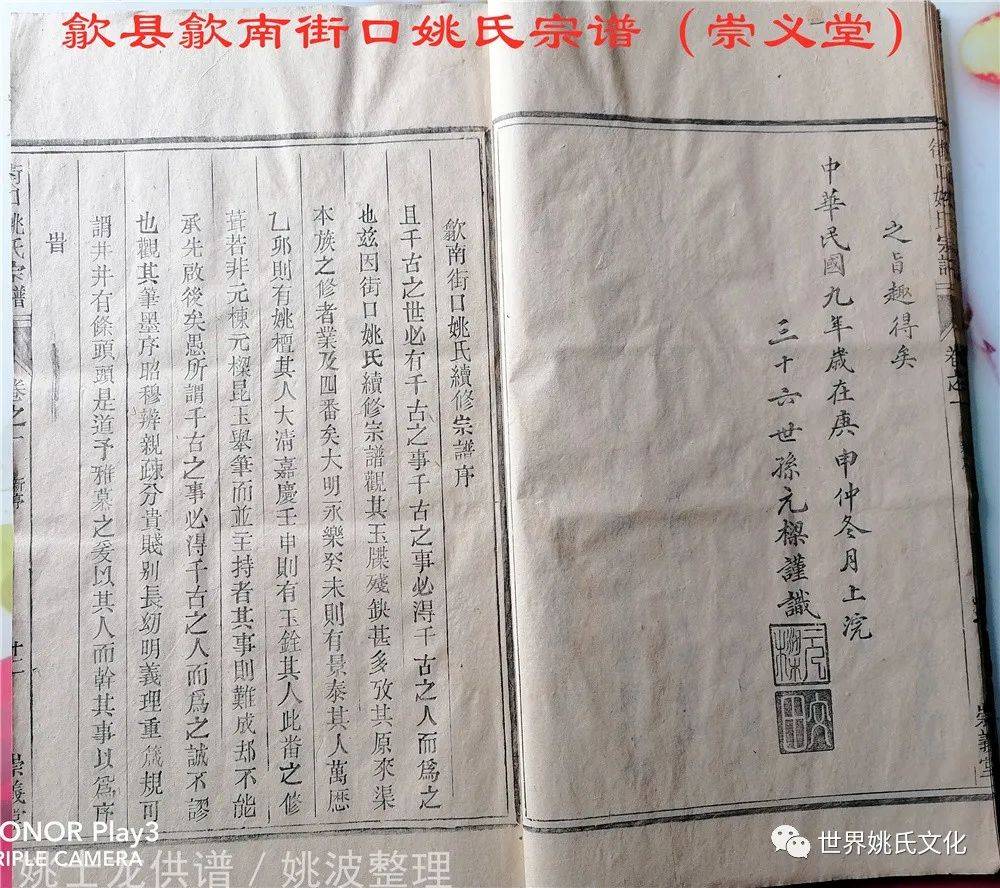 歙县歙南街口姚氏宗谱（崇义堂）
之旨趣得矣
中華民國九年歲在庚申仲冬月上浣
三十六世孫元櫟謹識
歙南街口姚氏續修宗譜序
且千古之世必有千古之事千古之事必得千古之人而爲之
也兹因街口姚氏續修宗譜觀其玉牒殘缺甚多攷其原來渠
本族之修者業及四番矣大明永樂癸未則有景泰其人萬歷
乙卯則有姚檀其人大清嘉慶壬申則有玉銓其人此番之修
葺若非元棟元櫟昆玉舉筆而並主持者其事則難成却不能
承先啟後矣愚所謂千古之事必得千古之人而爲之誠不謬
也觀其筆墨序昭穆辨親疎分貴賤别長幼明義理重箴規可
謂井井有條頭頭是道予雅慕之爰以其人而幹其事以爲序
旹
街口姚氏宗譜
卷之一
十二
崇義堂
HONOR Play3
TRIPLE CAMERA
姚士龙供谱／姚波整理
世界姚氏文化